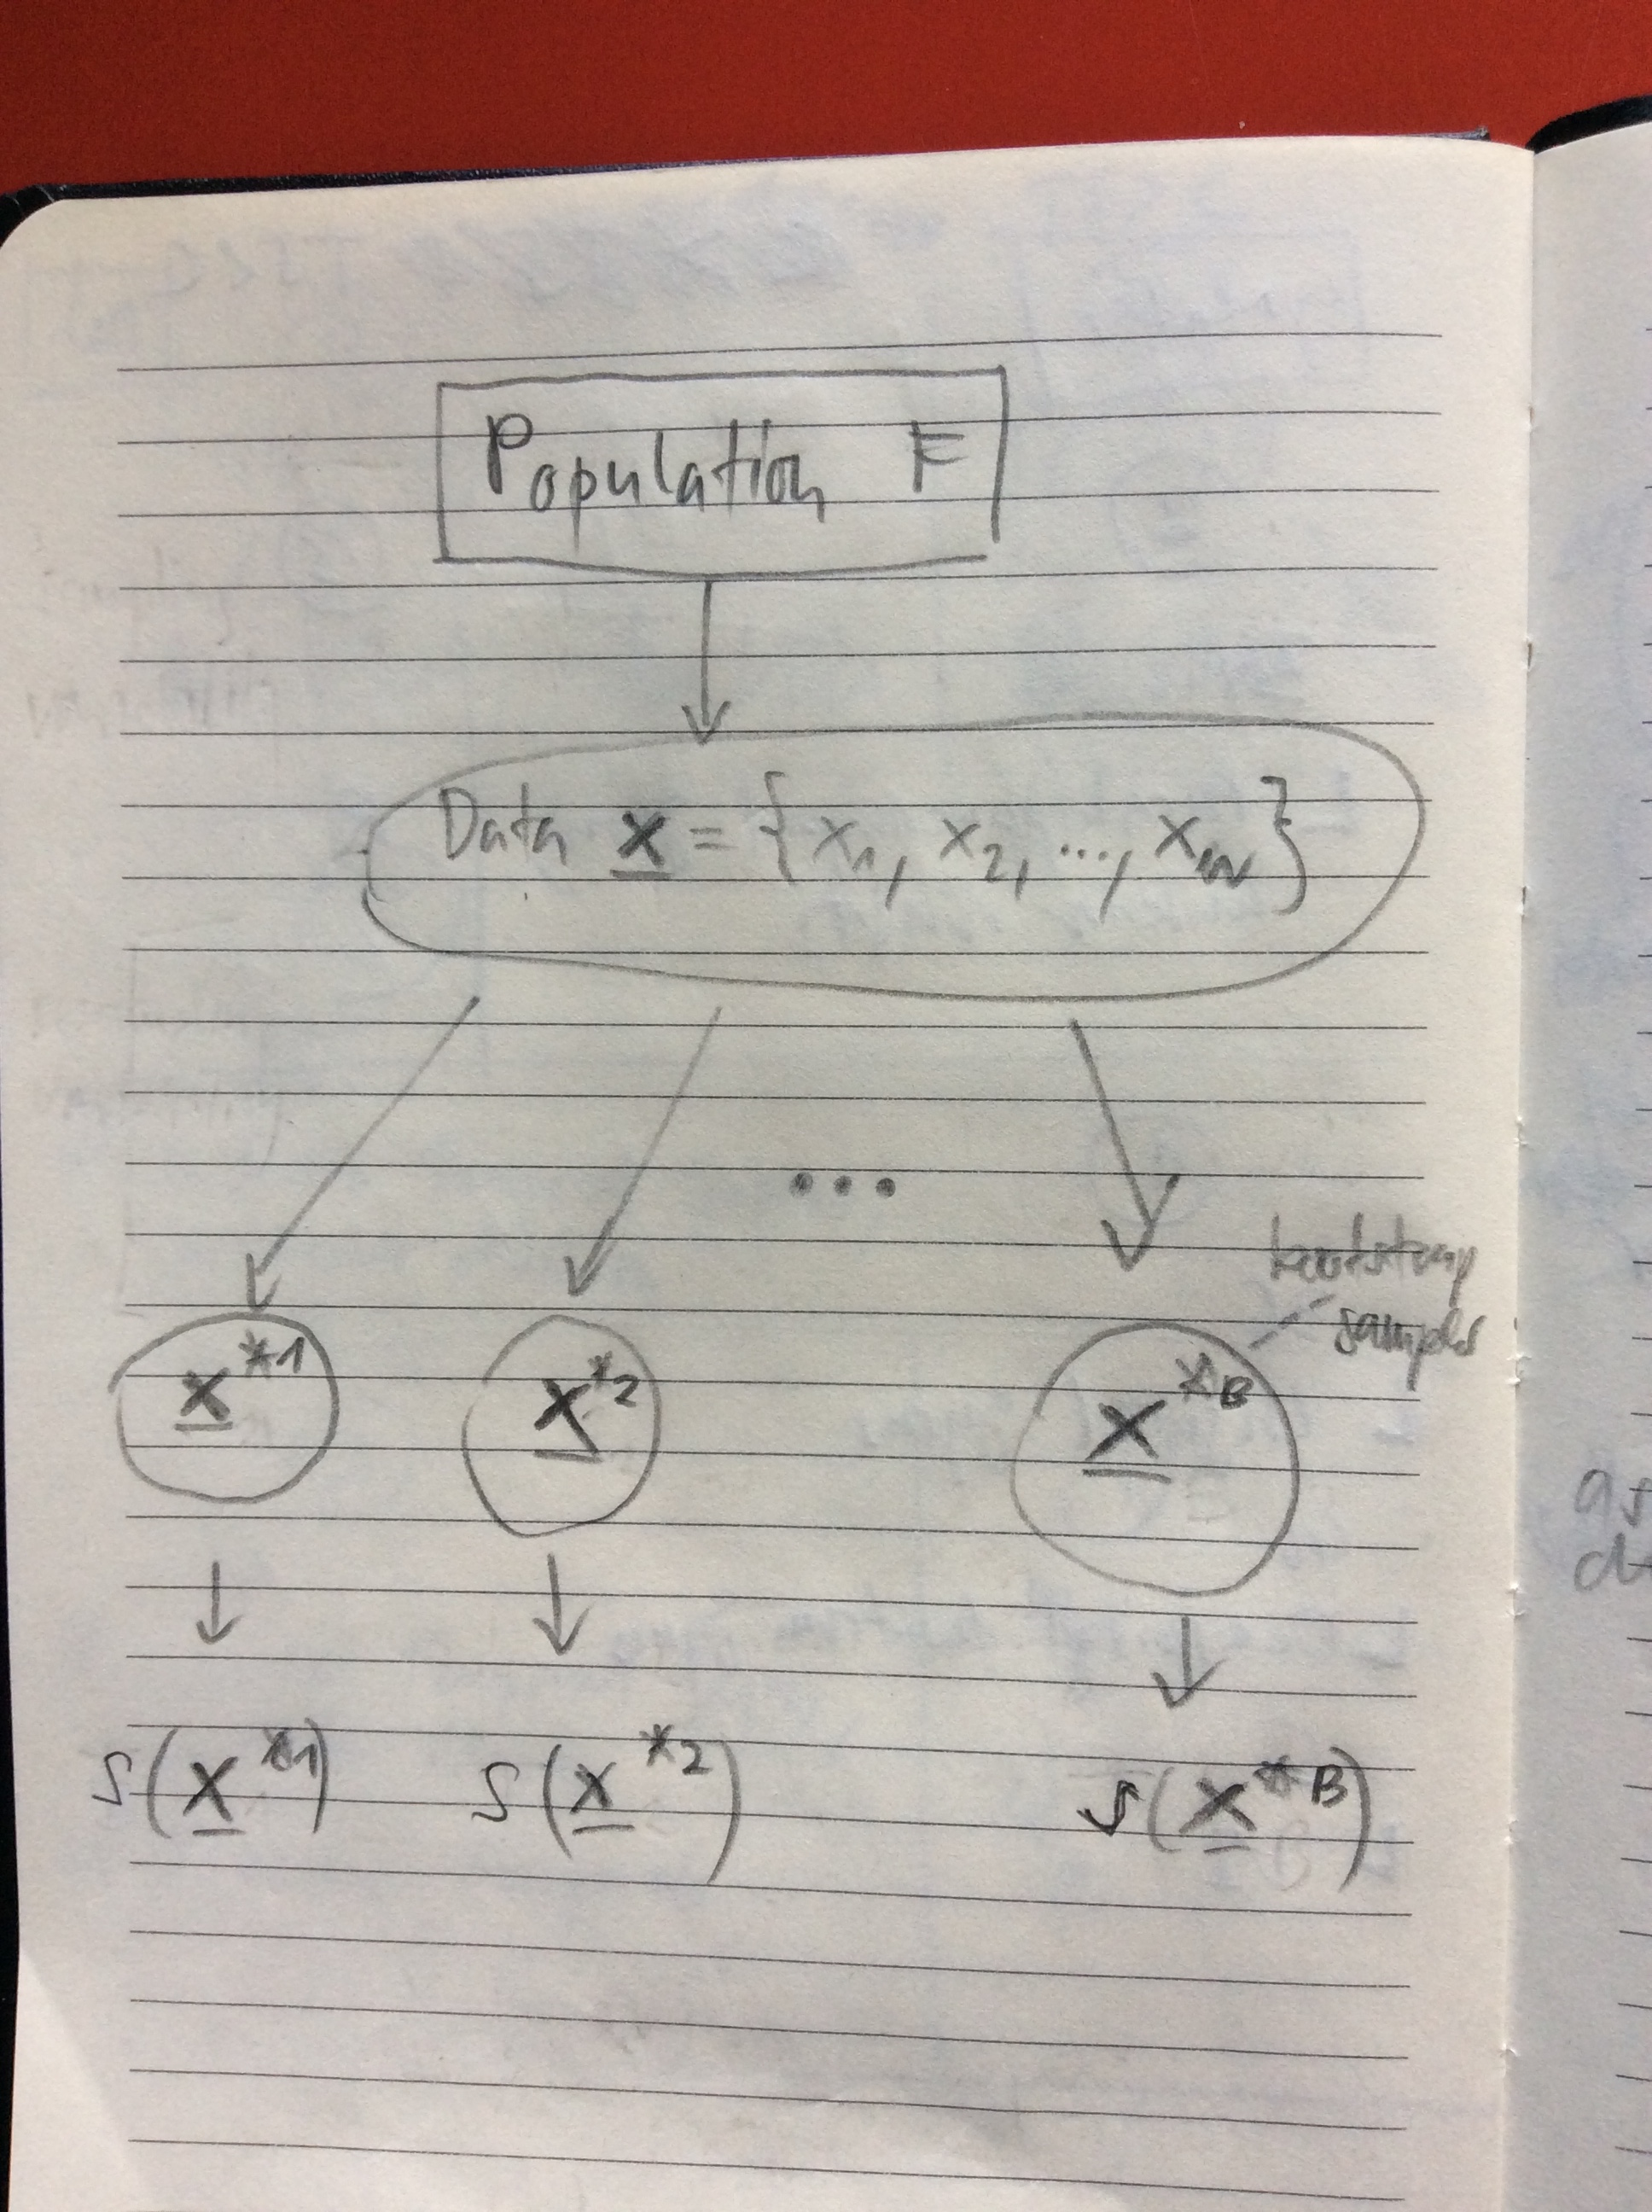 Population F
Data x = {x1, x2, ..., xn}
...
bootstrap
samples
x*1 x*2 x*B
s(x*1) s(x*2) s(x*B)